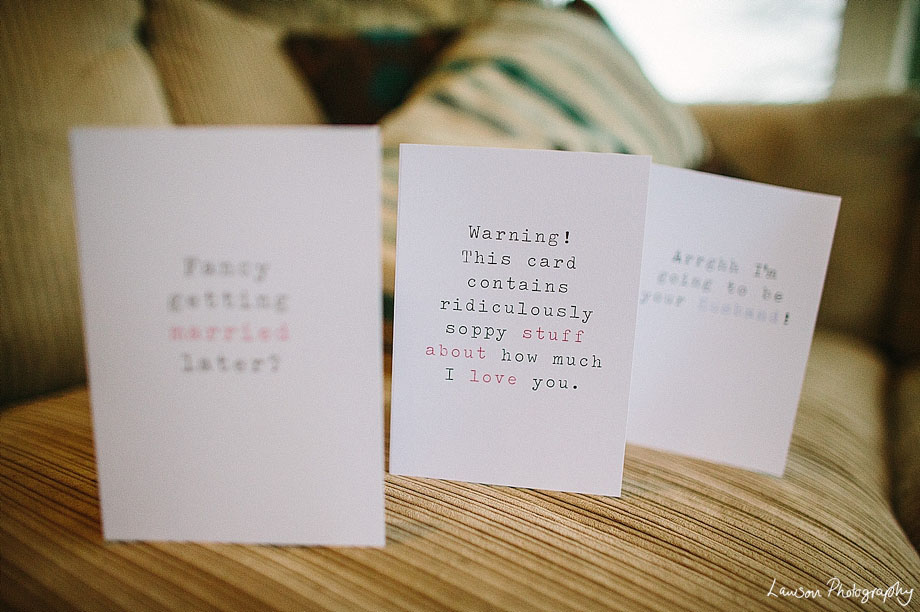 Fancy
getting
married
later?
Warning!
This card
contains
ridiculously
soppy stuff
about how much
I love you.
Arrghh I'm
going to be
your husband!
Lawson Photography